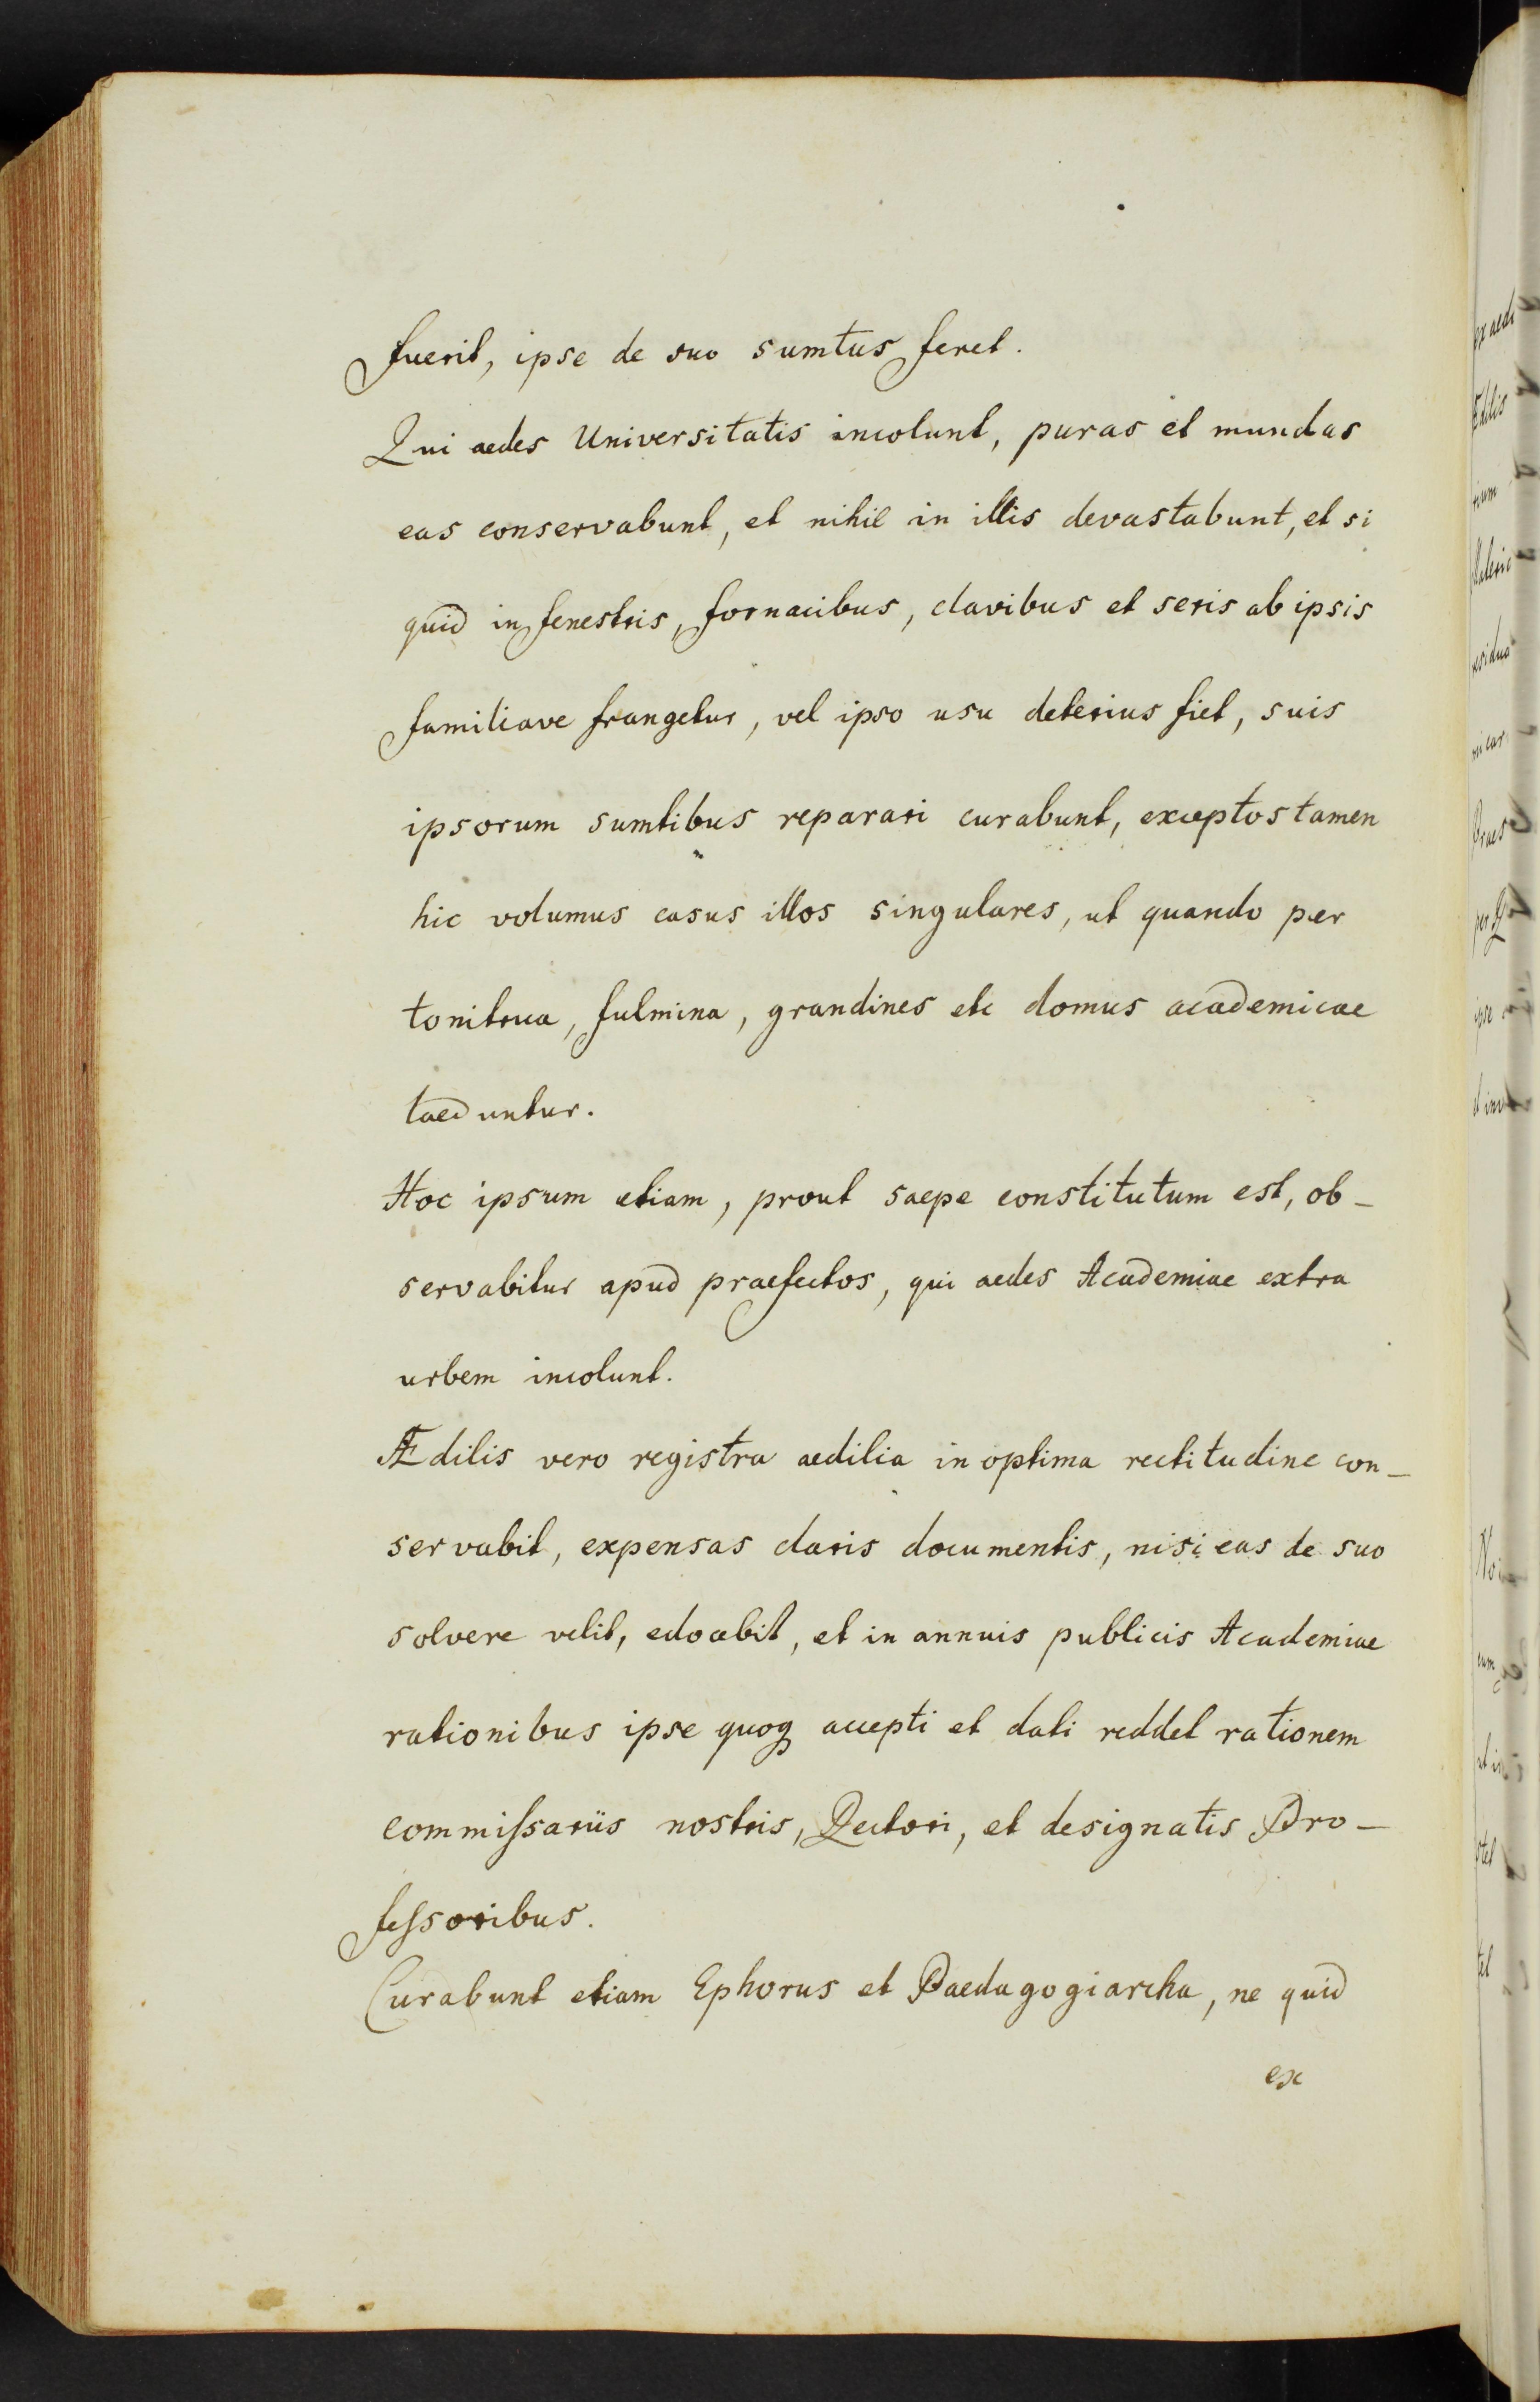 fuerit, ipse de suo sumtus feret.
Qui aedes Universitatis incolunt, puras et mundas
eas conservabunt, et nihil in illis devastabunt, et si
quid in fenestris, fornacibus, clavibus et seris ab ipsis
familiave frangetur, vel ipso usu deterius fiet, suis
ipsorum sumtibus reparari curabunt, exceptos tamen
hic volumus casus illos singulares, ut quando per
tonitrua, fulmina, grandines etc domus academicae
laeduntur.
Hoc ipsum etiam, prout saepe constitutum est, ob-
servabitur apud praefectos, qui aedes Academiae extra
urbem incolunt.
Ædilis vero registra aedilia in optima rectitudine con-
servabit, expensas claris documentis, nisi eas de suo
solvere velit, edocebit, et in annuis publicis Academiae
rationibus ipse quoq accepti et dati reddet rationem
commiſsariis nostris, Rectori, et designatis Pro-
feſsoribus.
Curabunt etiam Ephorus et Paedagogiarcha, ne quid
ex